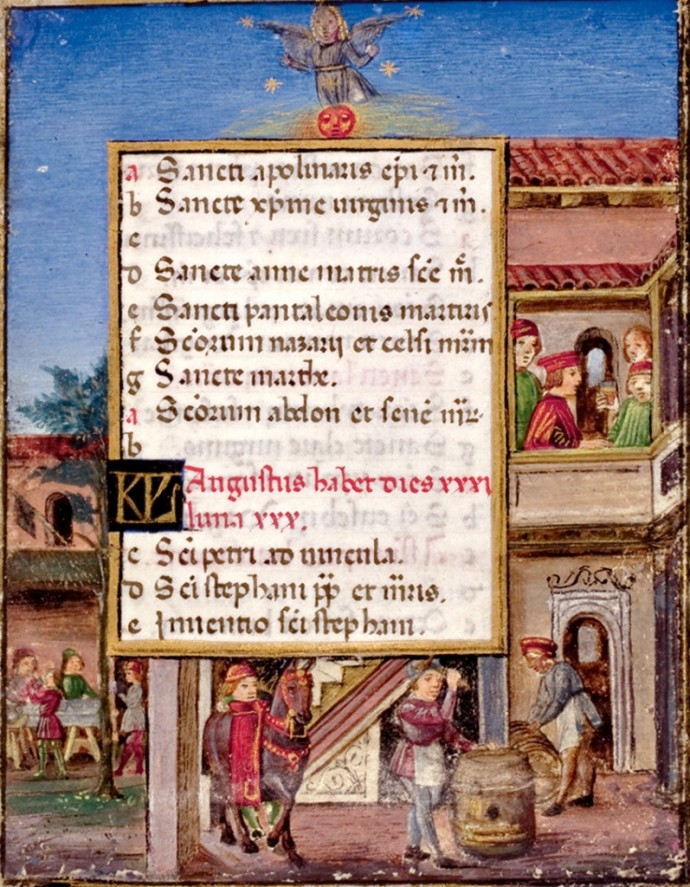 a Sancti apolinaris ep̄i ⁊ m̄.
b Sancte xp̄ine uirginis ⁊ m̄.
c
d Sancte anne matris sc̄e m̄.
e Sancti pantaleonis martiris
f Sc̄orum nazarij et celsi mr̄m
g Sancte marthe.
a Sc̄orum abdon et senē mr̄
b
KL Augustus habet dies xxxi
luna xxx.
c Sc̄i petri ad uincula.
d Sc̄i stephani pp̄ et mr̄is.
e Inuentio sc̄i stephani.